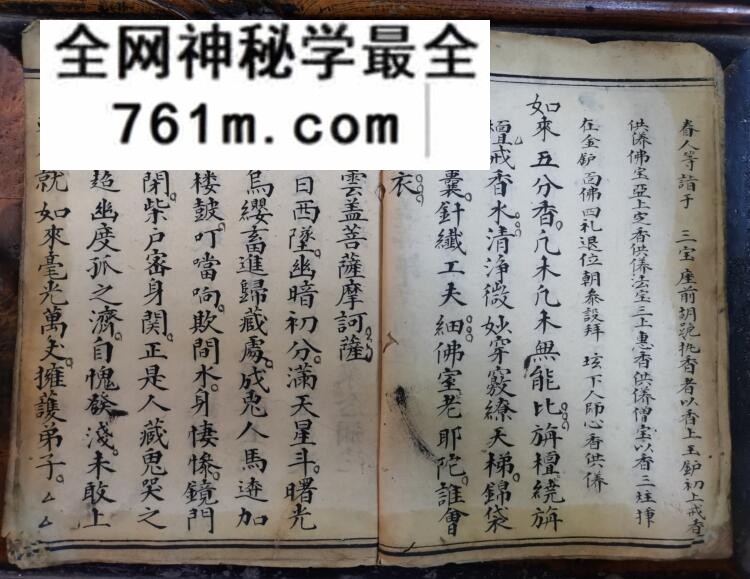 全网神秘学最全
761m.com
春人等詣于 三宝座前胡跪执香者以香上玉炉初上戒香
供養佛宝亞上定香供養法宝三上惠香供養僧宝以香三炷挿
在金炉面佛四礼退位朝叅設拜 坛下人師心香供養
如來五分香凢木凢未無能比旃檀繞旃
檀戒香水清浄微妙穿竅繚天梯錦袋
囊針纖工夫細佛室老耶陀誰會
衣
雲盖菩薩摩訶薩
日西墜幽暗初分滿天星斗曙光
烏纓畜進歸藏處成兎人馬遶加
楼鼓叮噹响欺間水身悽惨鏡門
閉柴户密身関正是人藏鬼哭之
超幽度孤之濟自愧發淺未敢上
就如來毫光萬丈擁護弟子厶厶